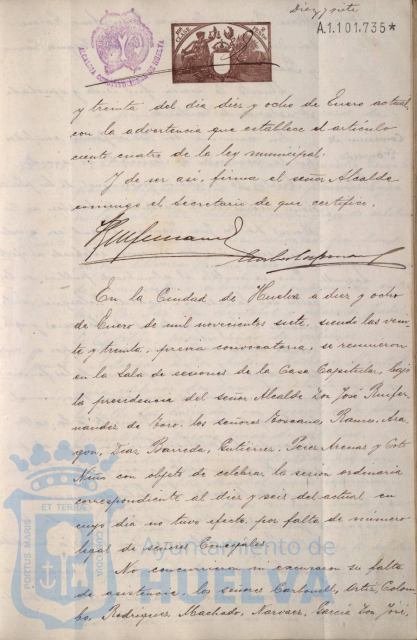 Diez y siete
A.1.101.735*
ALCALDIA CONSTITUCIONAL DE HUELVA
y treinta del dia diez y ocho de Enero actual,
con la advertencia que establece el artículo
ciento cuatro de la ley municipal.
Y de ser así, firma el señor Alcalde
conmigo el Secretario de que certifico.
En la Ciudad de Huelva a diez y ocho
de Enero de mil novecientos siete, siendo las vein
te y treinta, previa convocatoria, se reunieron
en la Sala de sesiones de la Casa Capitular, bajo
la presidencia del señor Alcalde Don José Ruifer
nández de Toro, los señores Toscano, Ramos, Ara
gon, Diaz Barreda, Gutierrez, Perez Arenas y Coto
Niño con objeto de celebrar la sesion ordinaria
correspondiente al diez y seis del actual en
cuyo dia no tuvo efecto, por falta de número
legal de señores Concejales.
No concurrieron ni excusaron su falta
de asistencia, los señores Carbonell, Ortiz, Colom
bo, Rodriguez Machado, Narvaez, Garcia
PORTUS MARIS ET TERRÆ CUSTODIA
Ayuntamiento de
HUELVA